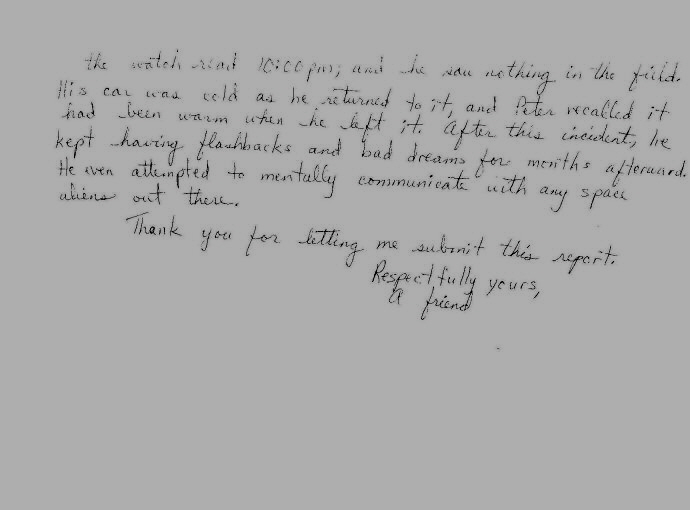 the watch read 10:00 pm; and he saw nothing in the field.
His car was cold as he returned to it, and Peter recalled it
had been warm when he left it. After this incident, he
kept having flashbacks and bad dreams for months afterward.
He even attempted to mentally communicate with any space
aliens out there.
Thank you for letting me submit this report.
Respectfully yours,
A friend